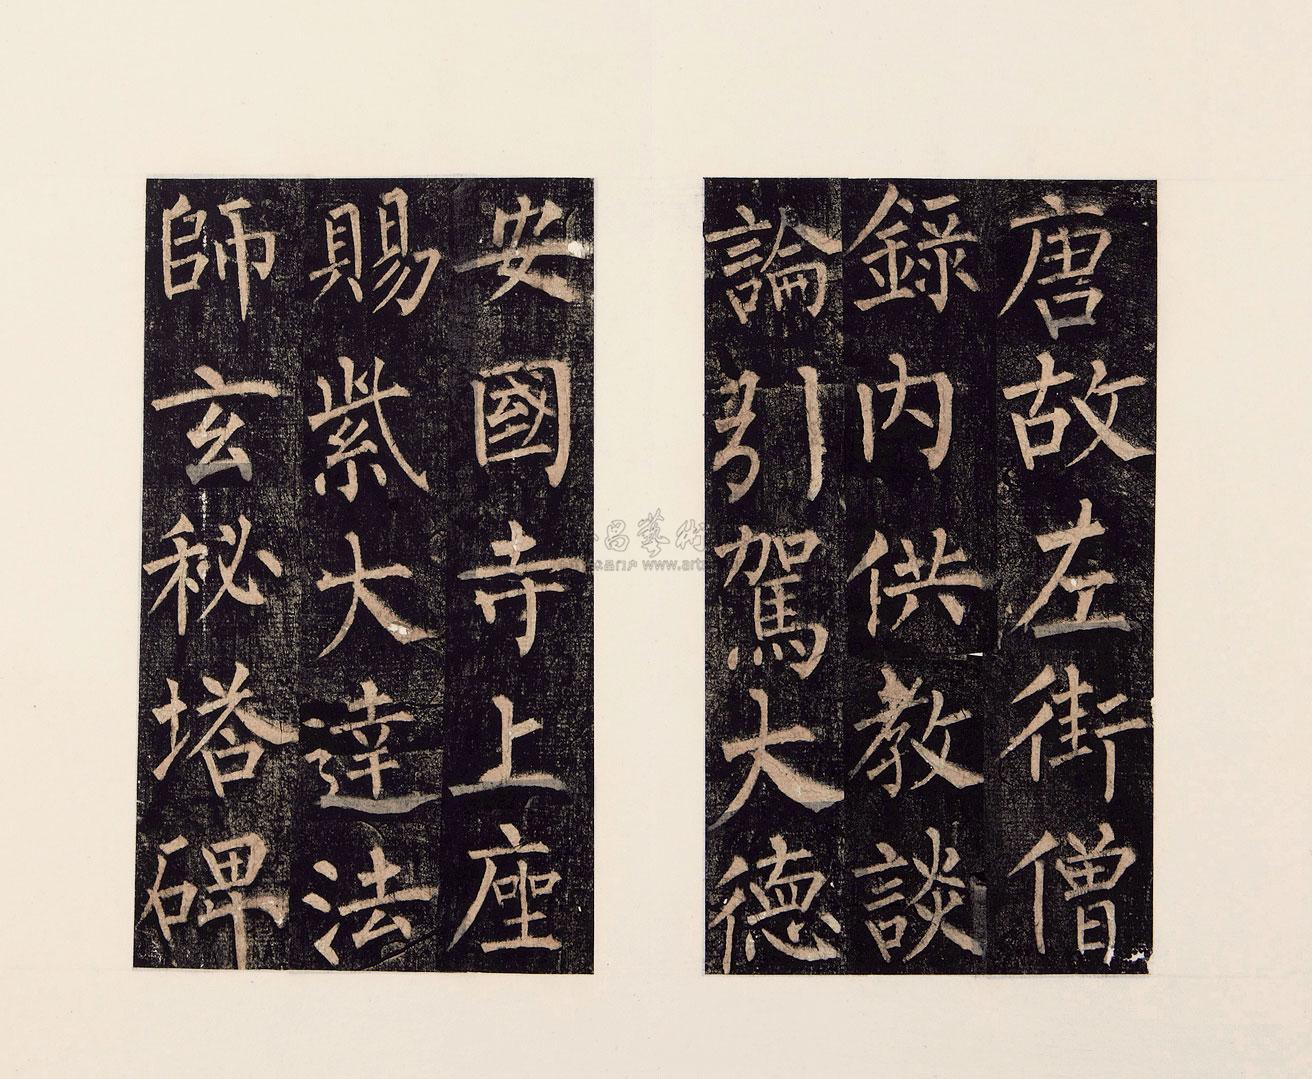 唐故左街僧
錄內供教談
論引駕大德
安國寺上座
賜紫大達法
師玄秘塔碑
昌藝術
www.art